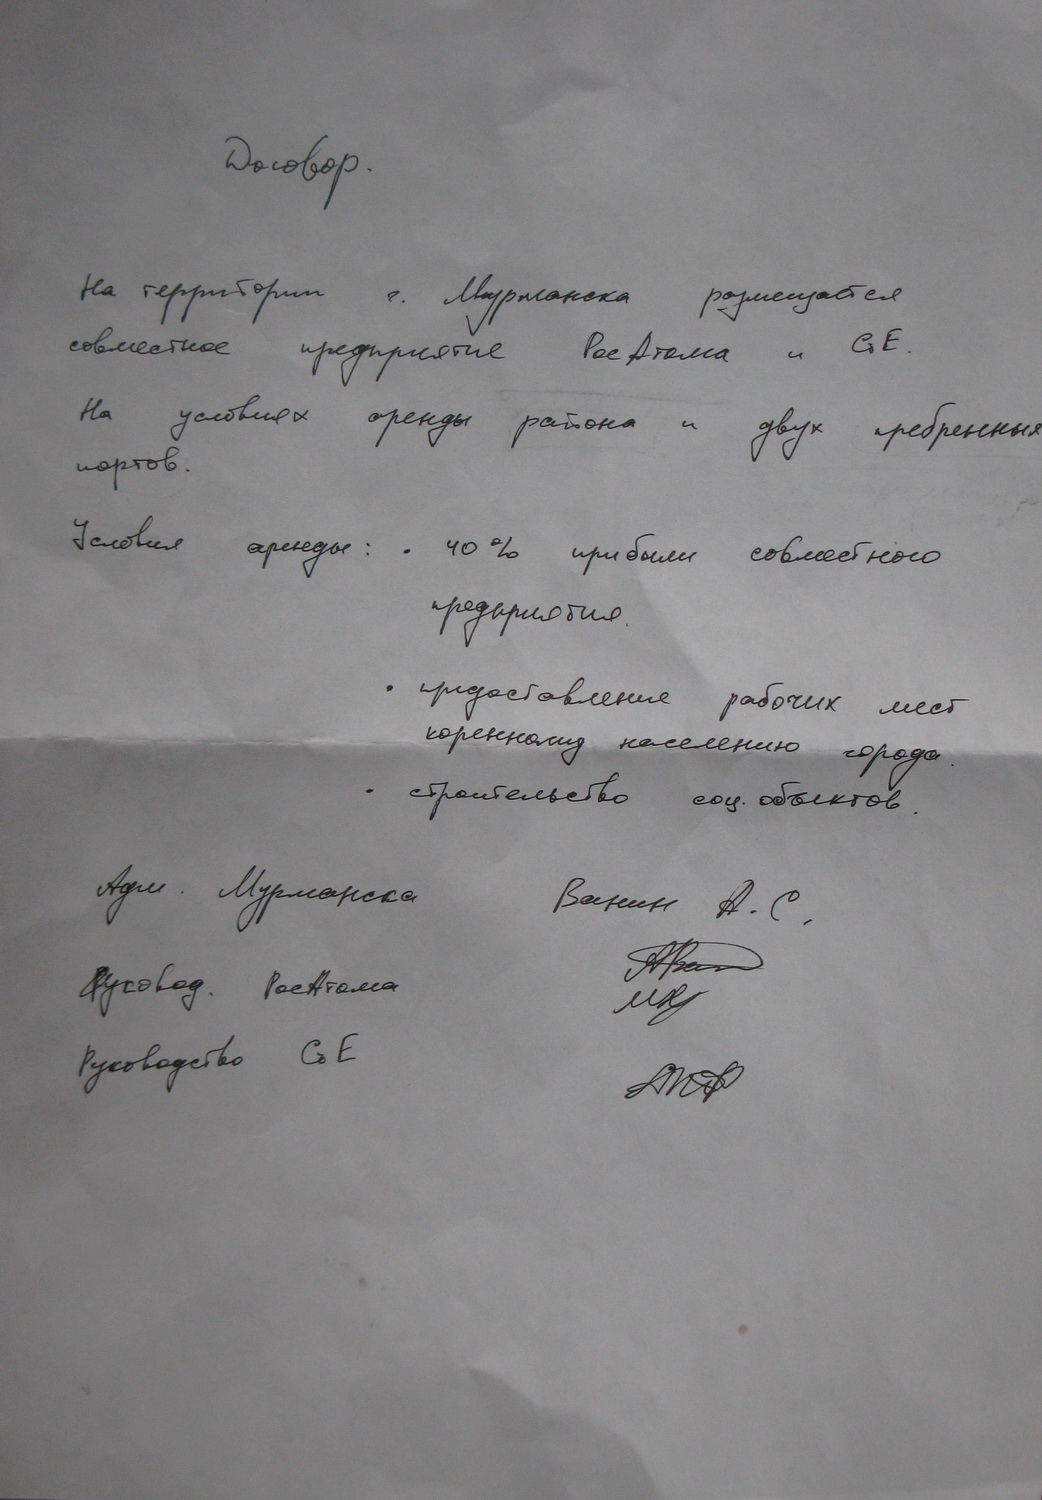 Договор.
На территории г. Мурманска размещается
совместное предприятие РосАтома и GE.
На условиях аренды района и двух пребренных
портов.
Условия аренды: • 40% прибыли совместного
предприятия.
• предоставления рабочих мест
коренному населению города.
• строительство соц. объектов.
Адм. Мурманска Ванин А. С.
Руковод. РосАтома
Руководство GE